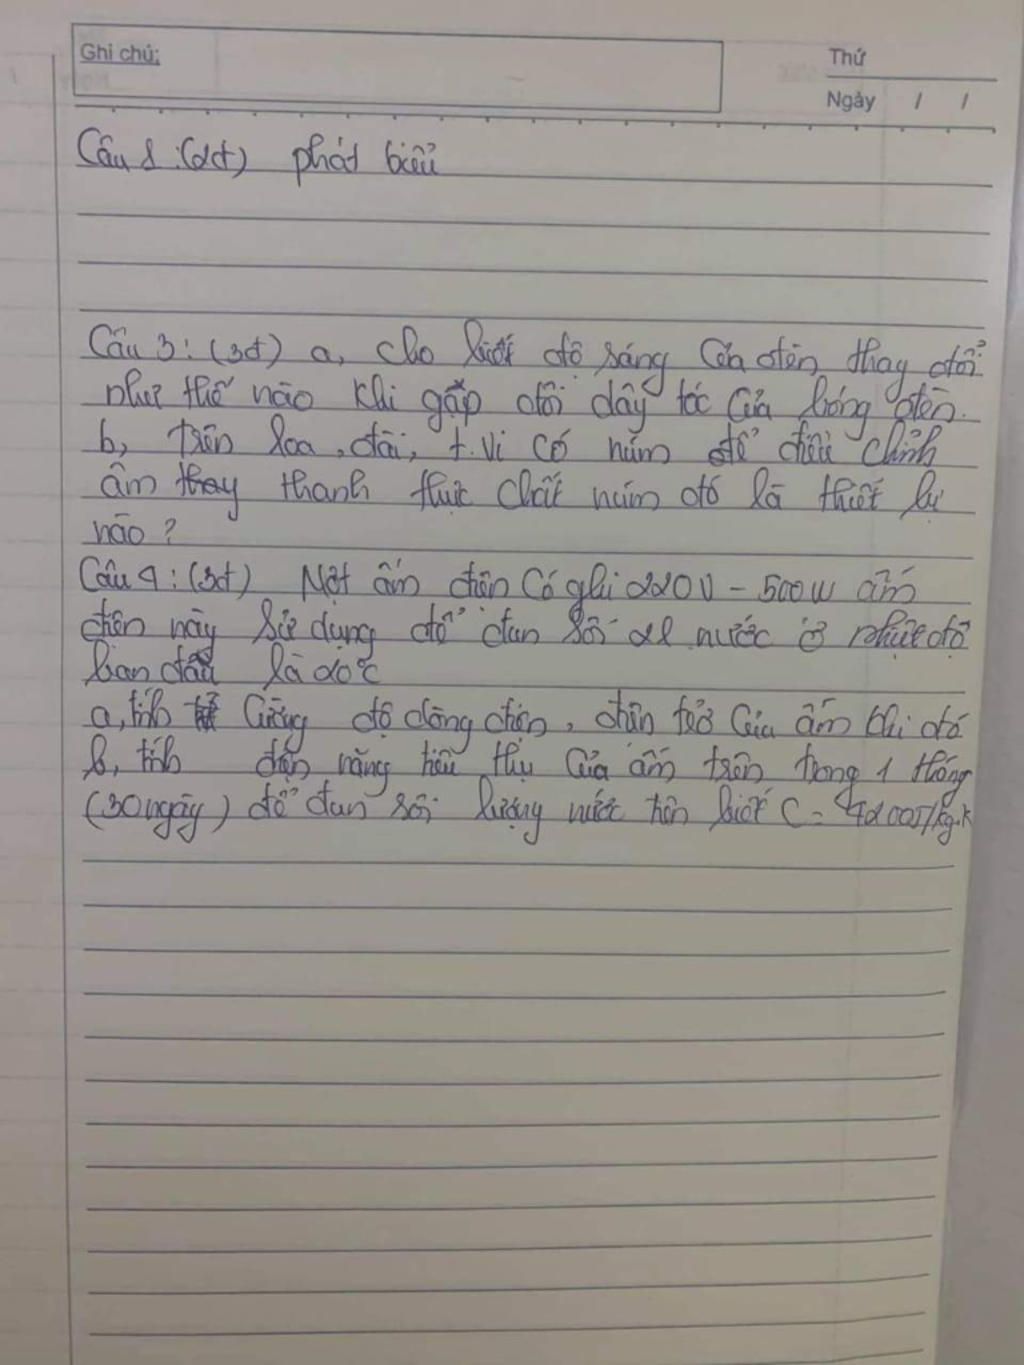 Ghi chú:
Thứ
Ngày / /
Câu 1: (2đ) phát biểu
Câu 3: (3đ) a, cho biết độ sáng của đèn thay đổi
như thế nào khi gặp đôi dây tóc của bóng đèn.
b, trên loa, đài, t.vi có núm để điều chỉnh
âm thay thanh thực chất núm đó là thiết bị
nào?
Câu 4: (3đ) Một ấm điện có ghi 220V - 500W ấm
điện này sử dụng để đun sôi 2l nước ở nhiệt độ
ban đầu là 20°C
a, tính cường độ dòng điện, điện trở của ấm khi đó
b, tính điện năng tiêu thụ của ấm trên trong 1 tháng
(30 ngày) để đun sôi lượng nước trên biết C = 4200J/kg.k